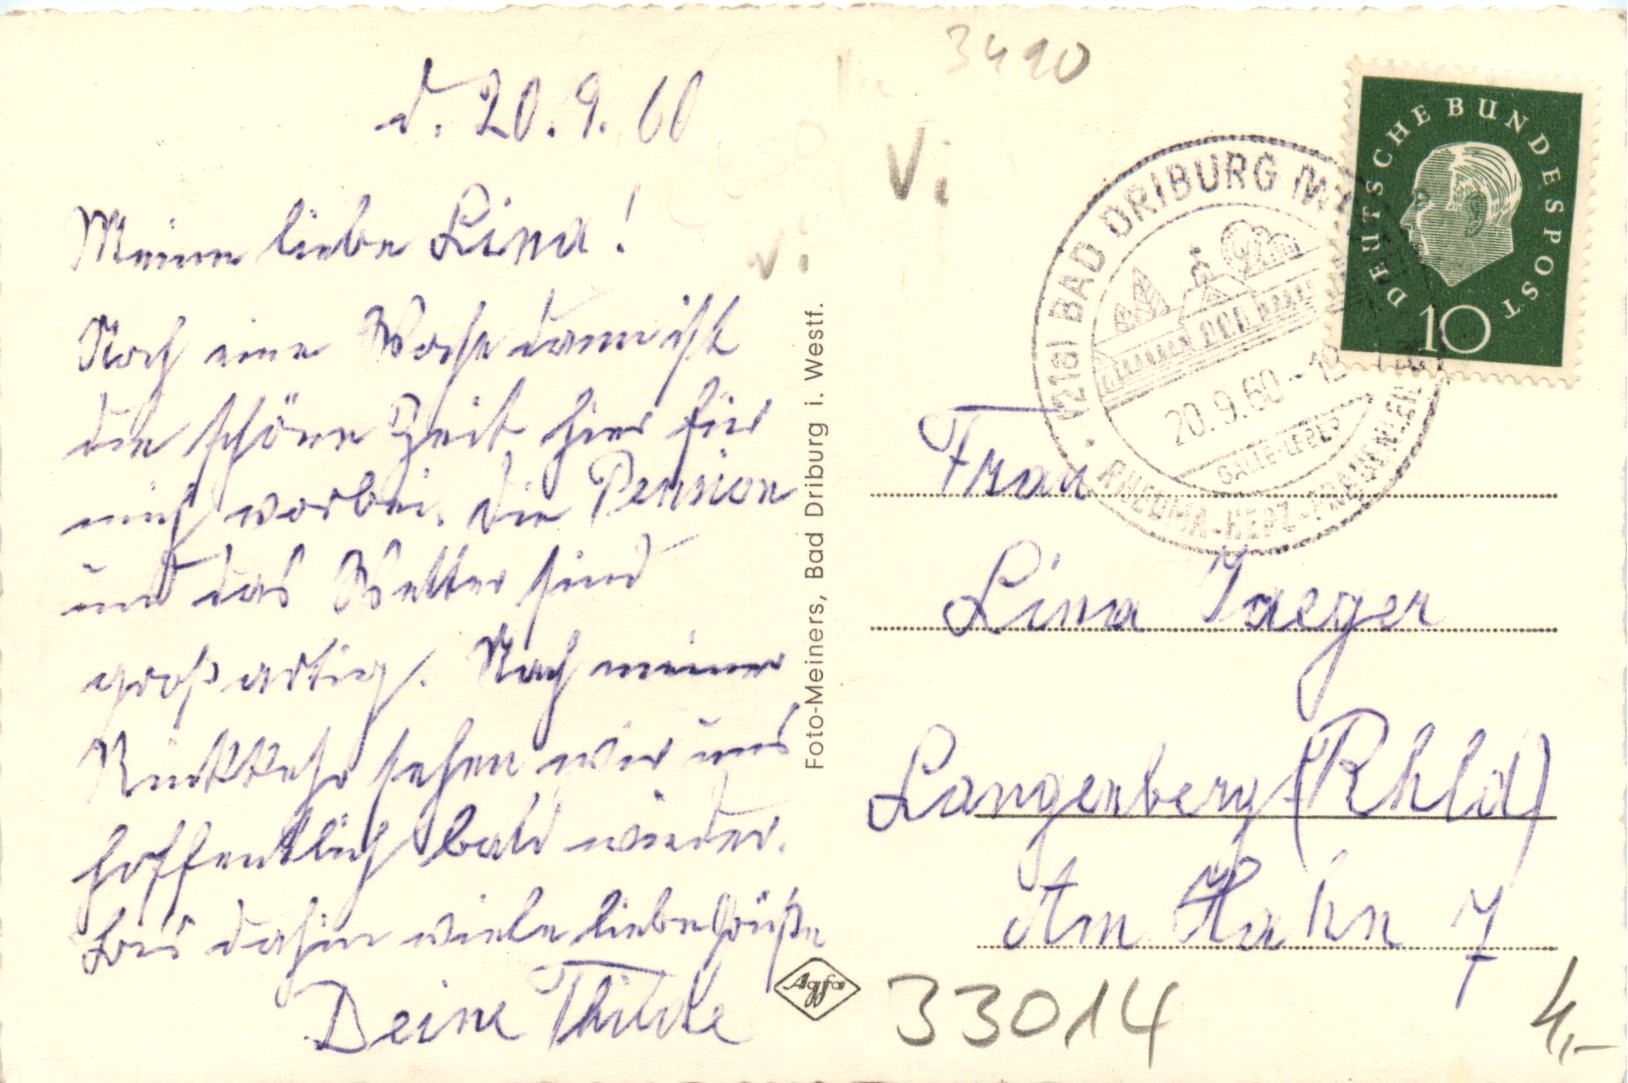 d. 20.9.60
Meine liebe Lina!
Noch eine Woche dann ist
die schöne Zeit hier für
mich vorbei. Die Pension
und das Wetter sind
großartig. Nach meiner
Rückkehr sehen wir uns
hoffentlich bald wieder.
Bis dahin viele liebe Grüße
Deine Thilde
Foto-Meiners, Bad Driburg i. Westf.
Agfa
3490
Vi
vi
DEUTSCHE BUNDESPOST
10
(21a) BAD DRIBURG
20.9.60-12
GALLE-LEBER
RHEUMA-HERZ-FRAUENLEIDEN
Frau
Lina Jaeger
Langenberg (Rhld)
Am Hahn 7
33014
4,-